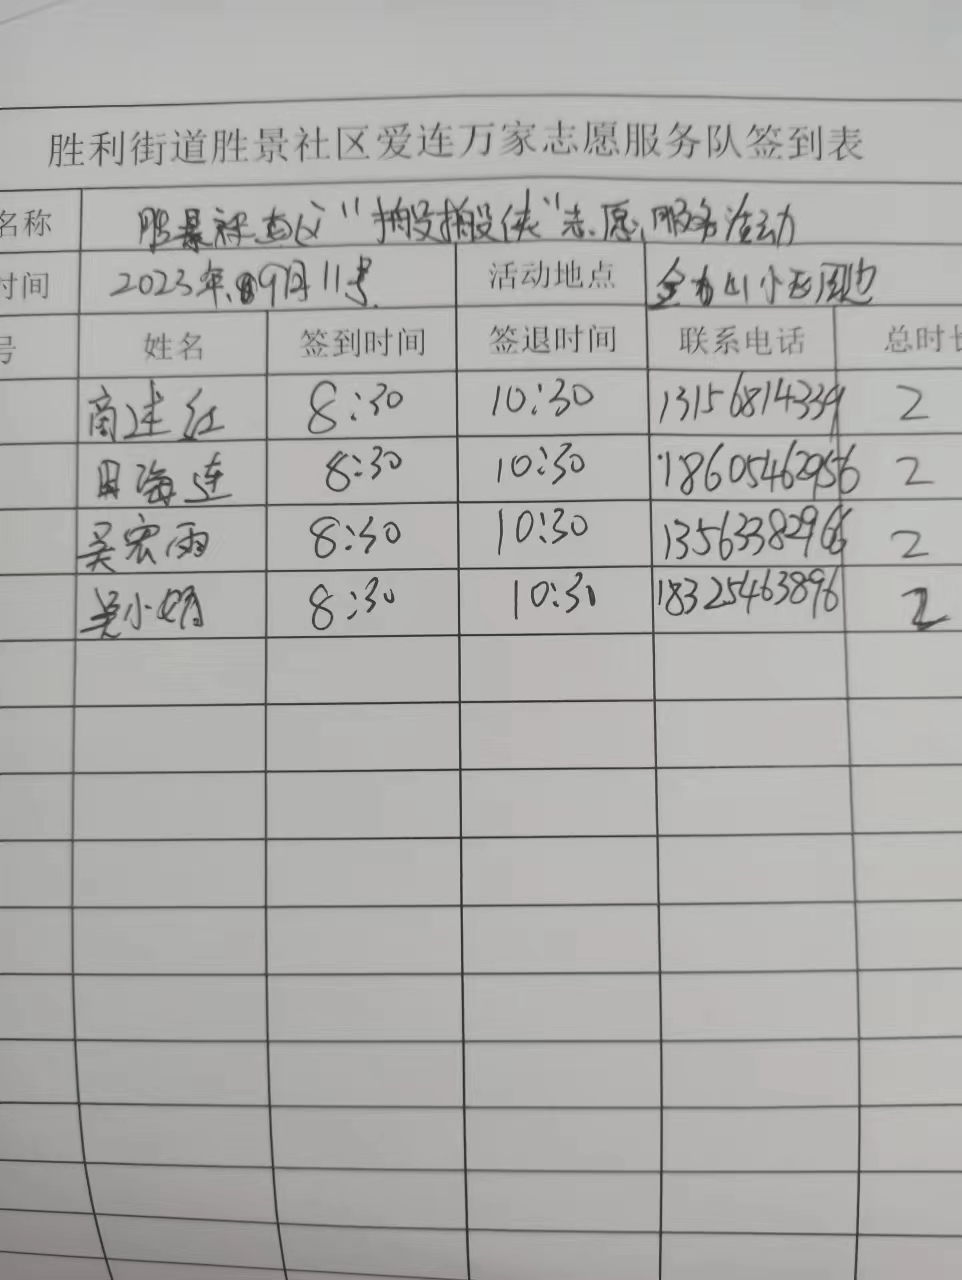 胜利街道胜景社区爱连万家志愿服务队签到表
名称 胜景社区"拍投拍投侠"志愿服务活动
时间 2023年09月11号 活动地点 小区周边
号 姓名 签到时间 签退时间 联系电话 总时长
商建红 8:30 10:30 13156814339 2
田海连 8:30 10:30 18605462956 2
吴宏雨 8:30 10:30 13563382966 2
吴小娟 8:30 10:30 18325463896 2